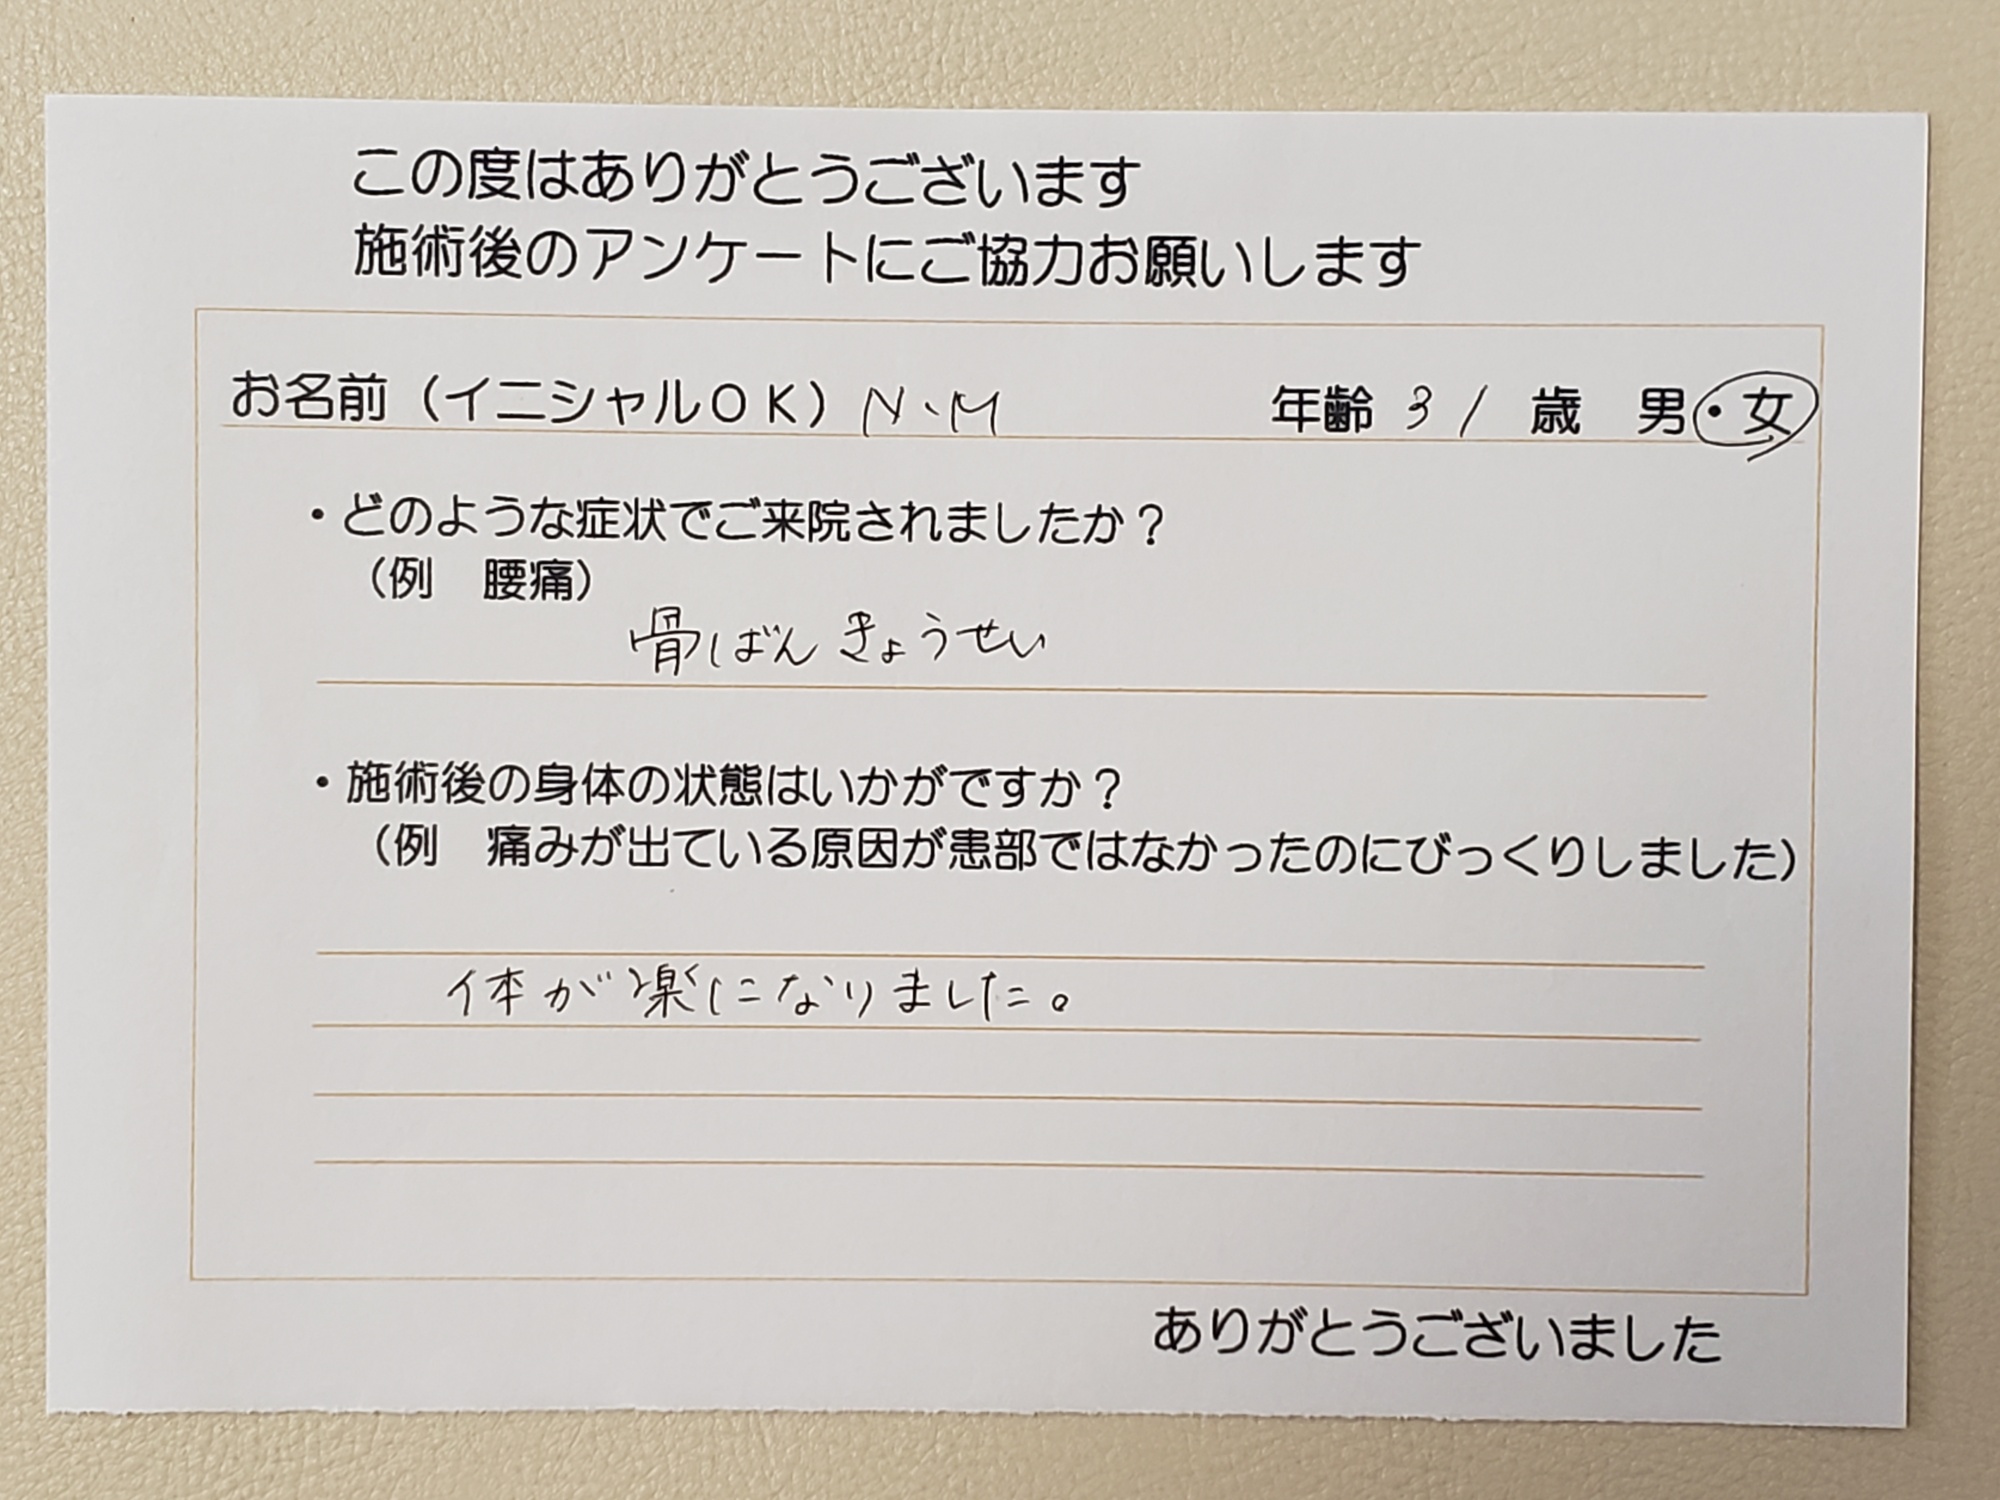 この度はありがとうございます
施術後のアンケートにご協力お願いします
お名前（イニシャルOK）N・M 年齢 31 歳 男・女
・どのような症状でご来院されましたか？
（例 腰痛）
骨ばんきょうせい
・施術後の身体の状態はいかがですか？
（例 痛みが出ている原因が患部ではなかったのにびっくりしました）
体が楽になりました。
ありがとうございました